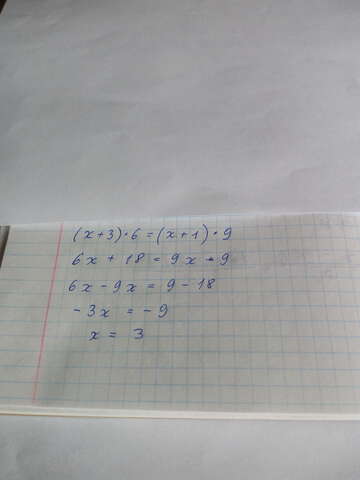 (x+3)·6=(x+1)·9
6x+18=9x+9
6x-9x=9-18
-3x=-9
x=3